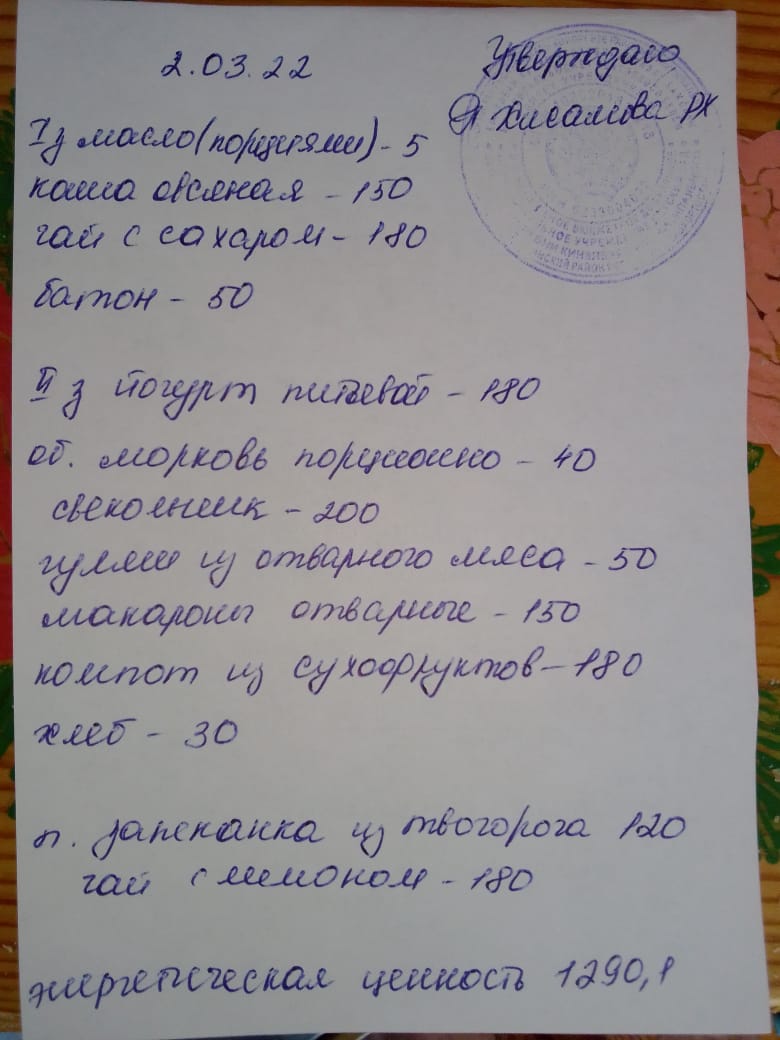 2.03.22
Утверждаю
Хисамова РХ
I з масло (порциями) - 5
каша овсяная - 150
чай с сахаром - 180
батон - 50
II з йогурт питьевой - 180
об. морковь порционно - 40
свекольник - 200
гуляш из отварного мяса - 50
макароны отварные - 150
компот из сухофруктов - 180
хлеб - 30
п. запеканка из твогорога 120
чай с лимоном - 180
энергетическая ценность 1290,1